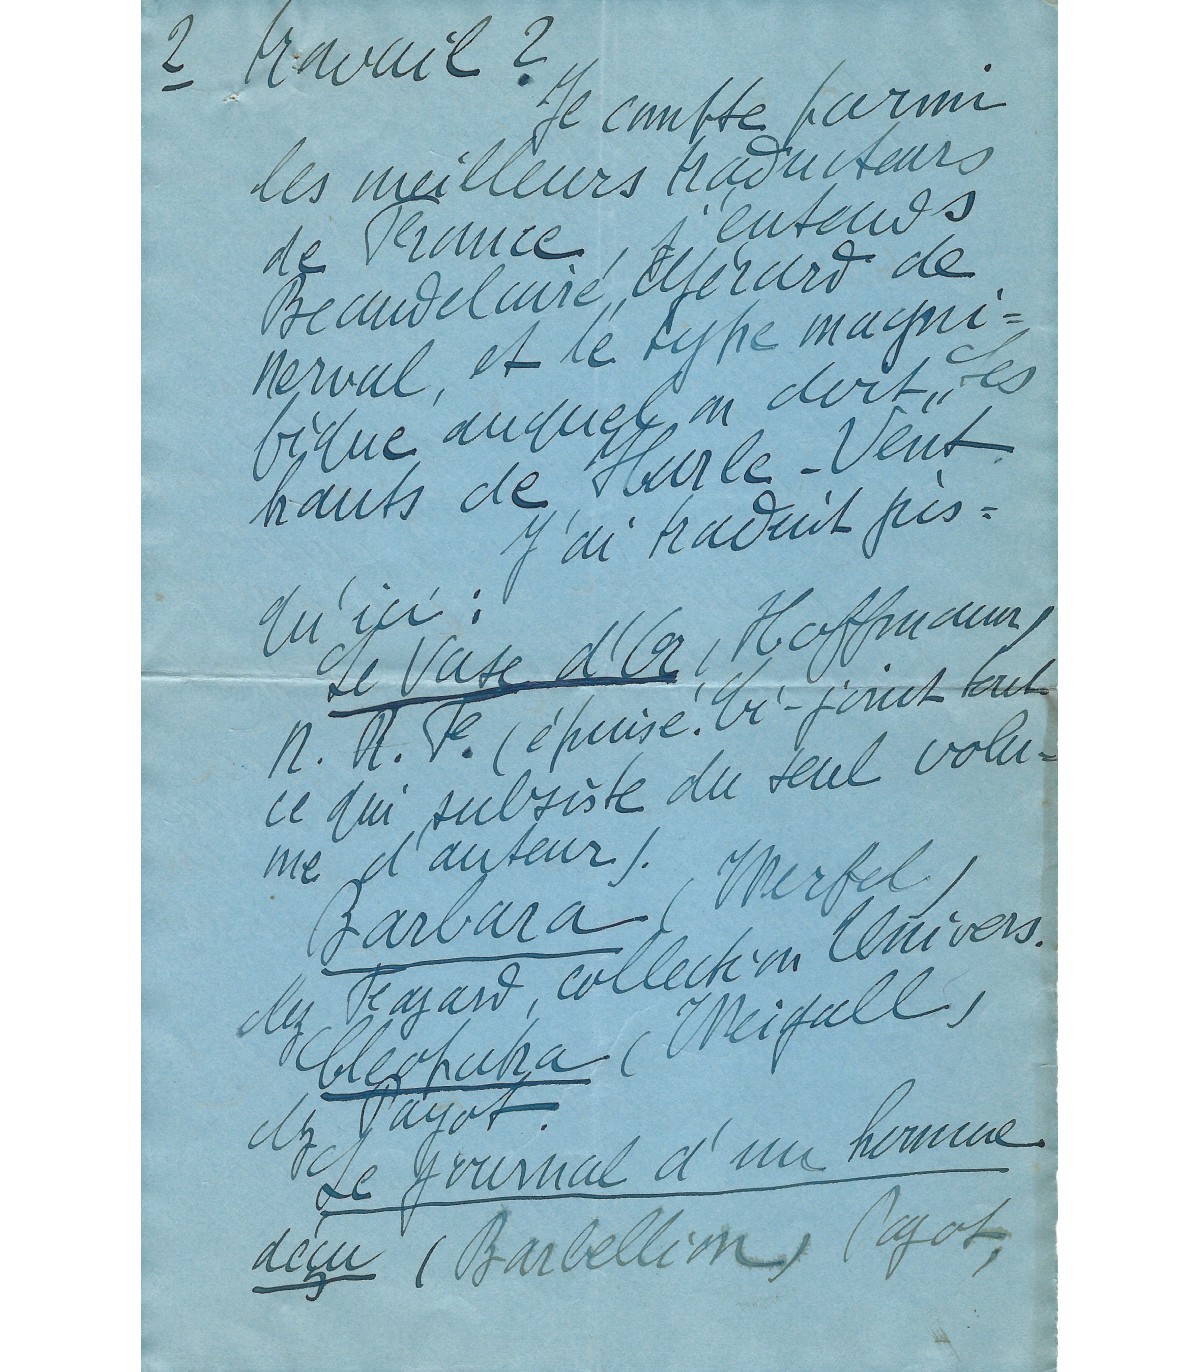 2 travail ?
Je compte parmi
les meilleurs traducteurs
de France, j'entends
Beaudelaire, Gérard de
nerval, et le type magni=
fique auquel on doit „Les
hauts de Hurle-Vent.
J'ai traduit jus=
qu'ici :
Le Vase d'Or, (Hoffmann,
N. R. F. (épuisé. Ci-joint tout
ce qui subsiste du seul volu-
me d'auteur).
Barbara (Werfel,
chez Fayard, collection Univers.
Cleopatra (Weigall,
chez Payot.
Le journal d'un homme
déçu (Barbellion) Payot,